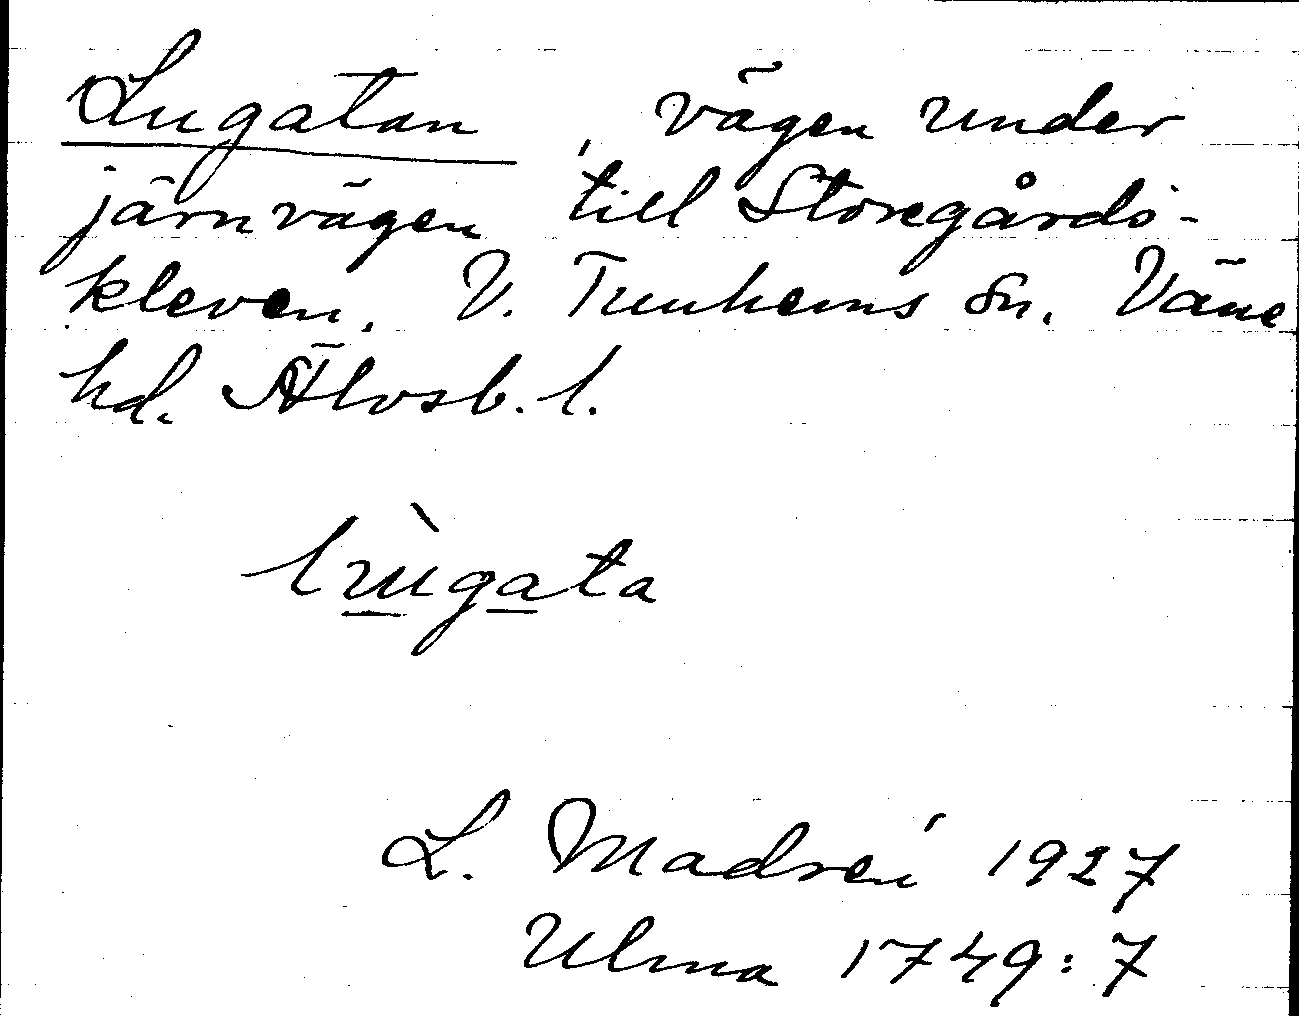 Lugatan, vägen under
järnvägen till Storegårds-
kleven. V. Tunhems sn. Väne
hd. Älvsb. l.
lùgata
L. Madrei 1927
Ulma 1749:7